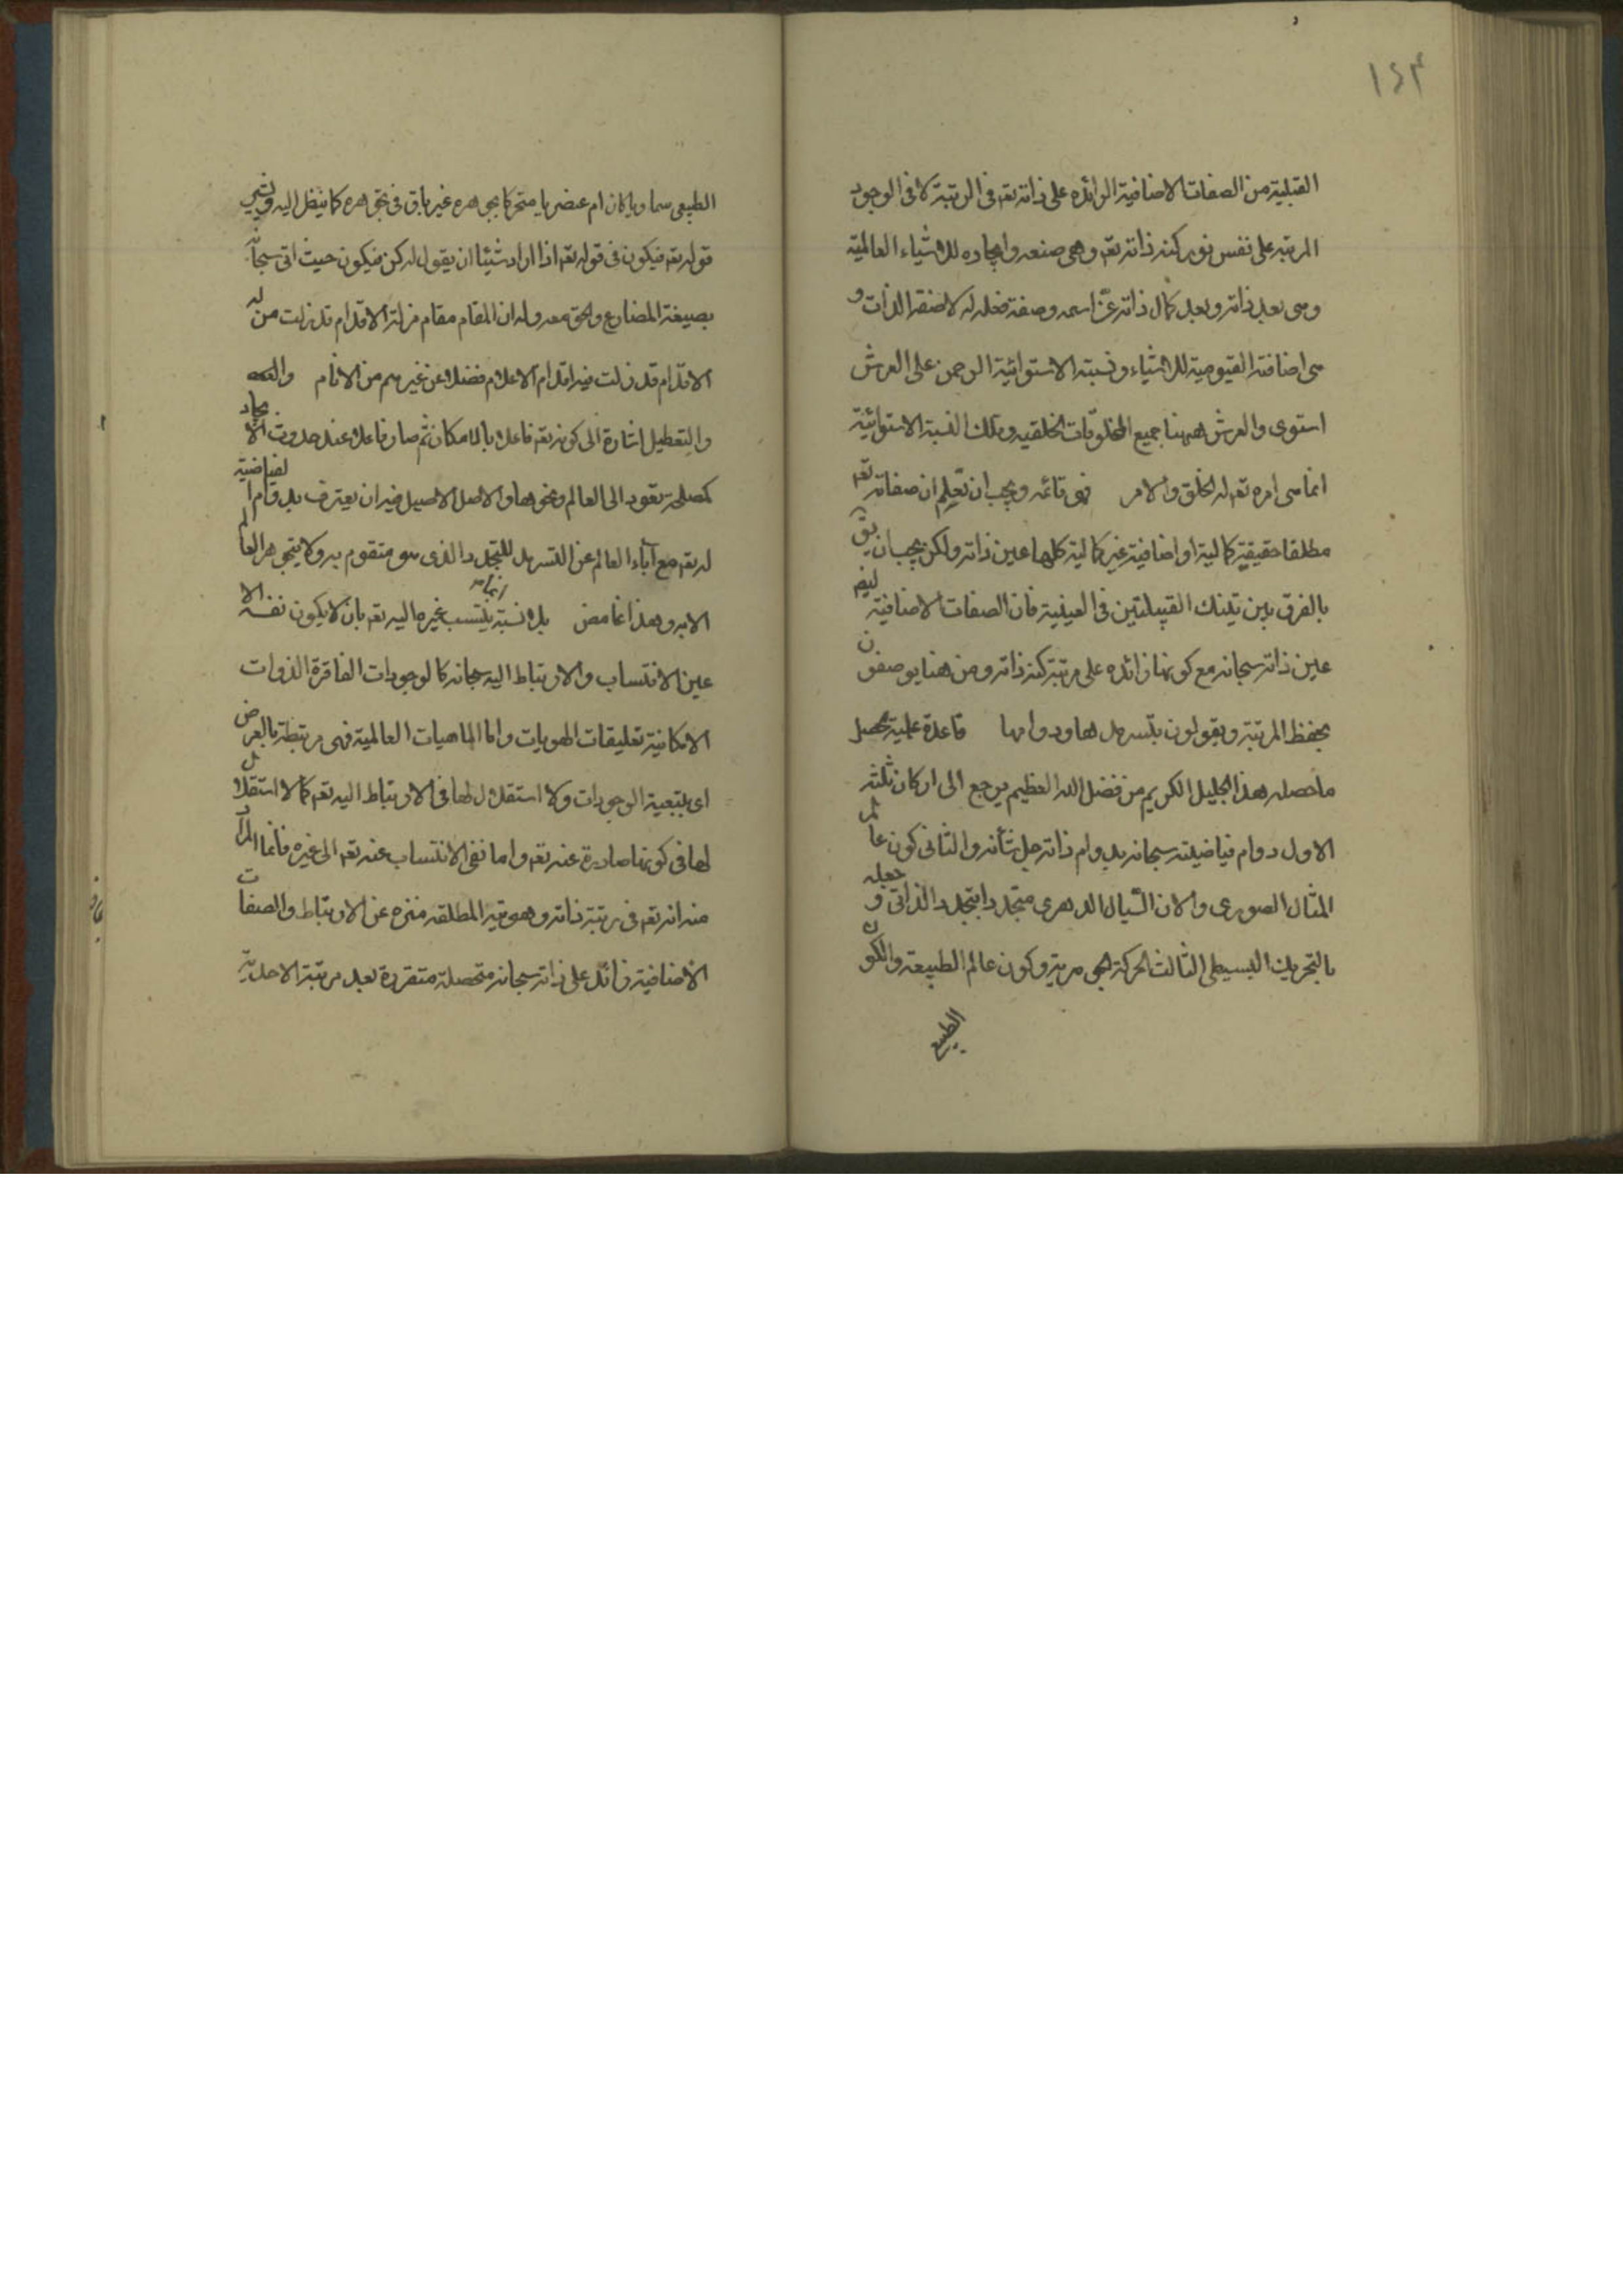 ١٤٣
القبلية من الصفات الاضافية الزائده على ذاته تعه فى الرتبة لا فى الوجود
المرتبه على نفس نور كنه ذاته تعه وهى صنعه وايجاده للاشياء العالمية
وهى بعد ذاته وبعد كمال ذاته عزّ اسمه وصفة فعله له لا صفة الذات و
هى اضافته القيومية للاشياء ونسبته الاستوائية الرحمن على العرش
استوى والعرش ههنا جميع المخلوقات الخلقيه وتلك النسبة الاستوائية
انما هى امره تعه له الخلق والامر فهى قائمه ويجب ان تعلم ان صفاته تعه
مطلقا حقيقية كمالية او اضافية غير كمالية كلها عين ذاته ولكن يجب ان يق
بالفرق بين تينك القبيلتين فى العينية فان الصفات الاضافية ليس
عين ذاته سبحانه مع كونها زائده على مرتبة كنه ذاته ومن هنا يوصفون
بحفظ المرتبة ويقولون بتسرمدها ودوامها قاعدة علمية محصل
ما حصله هذا الجليل الكريم من فضل الله العظيم يرجع الى اركان ثلثه
الاول دوام فياضيته سبحانه بدوام ذاته جل شأنه والثانى كون عالم
المثال الصورى والان السّيال الدهرى متجددا بتجدد الذاتى و جعله
بالتحريك البسيطى الثالث الحركة الجوهرية وكون عالم الطبيعه والكون
الطبيع
الطبيعى سماويا كان ام عنصريا متحركا بجوهره غير باق فى جوهره كما ينظر اليه ويشير
قوله تعه فيكون فى قوله تعه اذا اراد شيئا ان يقول له كن فيكون حيث اتى سبحانه
بصيغة المضارع والحق معه ولان المقام مقام مزلة الاقدام قد زلت منه
الاقدام قد زلت فيه اقدام الاعلام فضلا عن غيرهم من الانام
والتعطيل اشارة الى كونه تعه فاعلا بالامكان ثم صار فاعلا عند حدوث الايجاد
كمصلحة تعود الى العالم ونحوها والاصل الاصيل فيه ان يعترف بدوام الفياضية
له تعه مع اباء العالم عن التسرمد للتجدد الذى هو متقوم به ولا يتجوهر العالم
الا به وهذا غامض بل نسبة ينتسب غيرها اليه تعه بان لا يكون نفسه الا
عين الانتساب والارتباط اليه سبحانه كالوجودات الفاقرة الذوات
الامكانية تعليقات الهويات واما الماهيات العالمية فهى مرتبطة بالعرض
اى بتبعية الوجودات ولا استقلال لها فى الارتباط اليه تعه كما لا استقلال
لها فى كونها صادرة عنه تعه واما نفى الانتساب عنه تعه الى غيره فانما المراد
منه انه تعه فى مرتبة ذاته وهويته المطلقه منزه عن الارتباط والصفات
الاضافية زائد على ذاته سبحانه متحصلة متقررة بعد مرتبة الاحدية